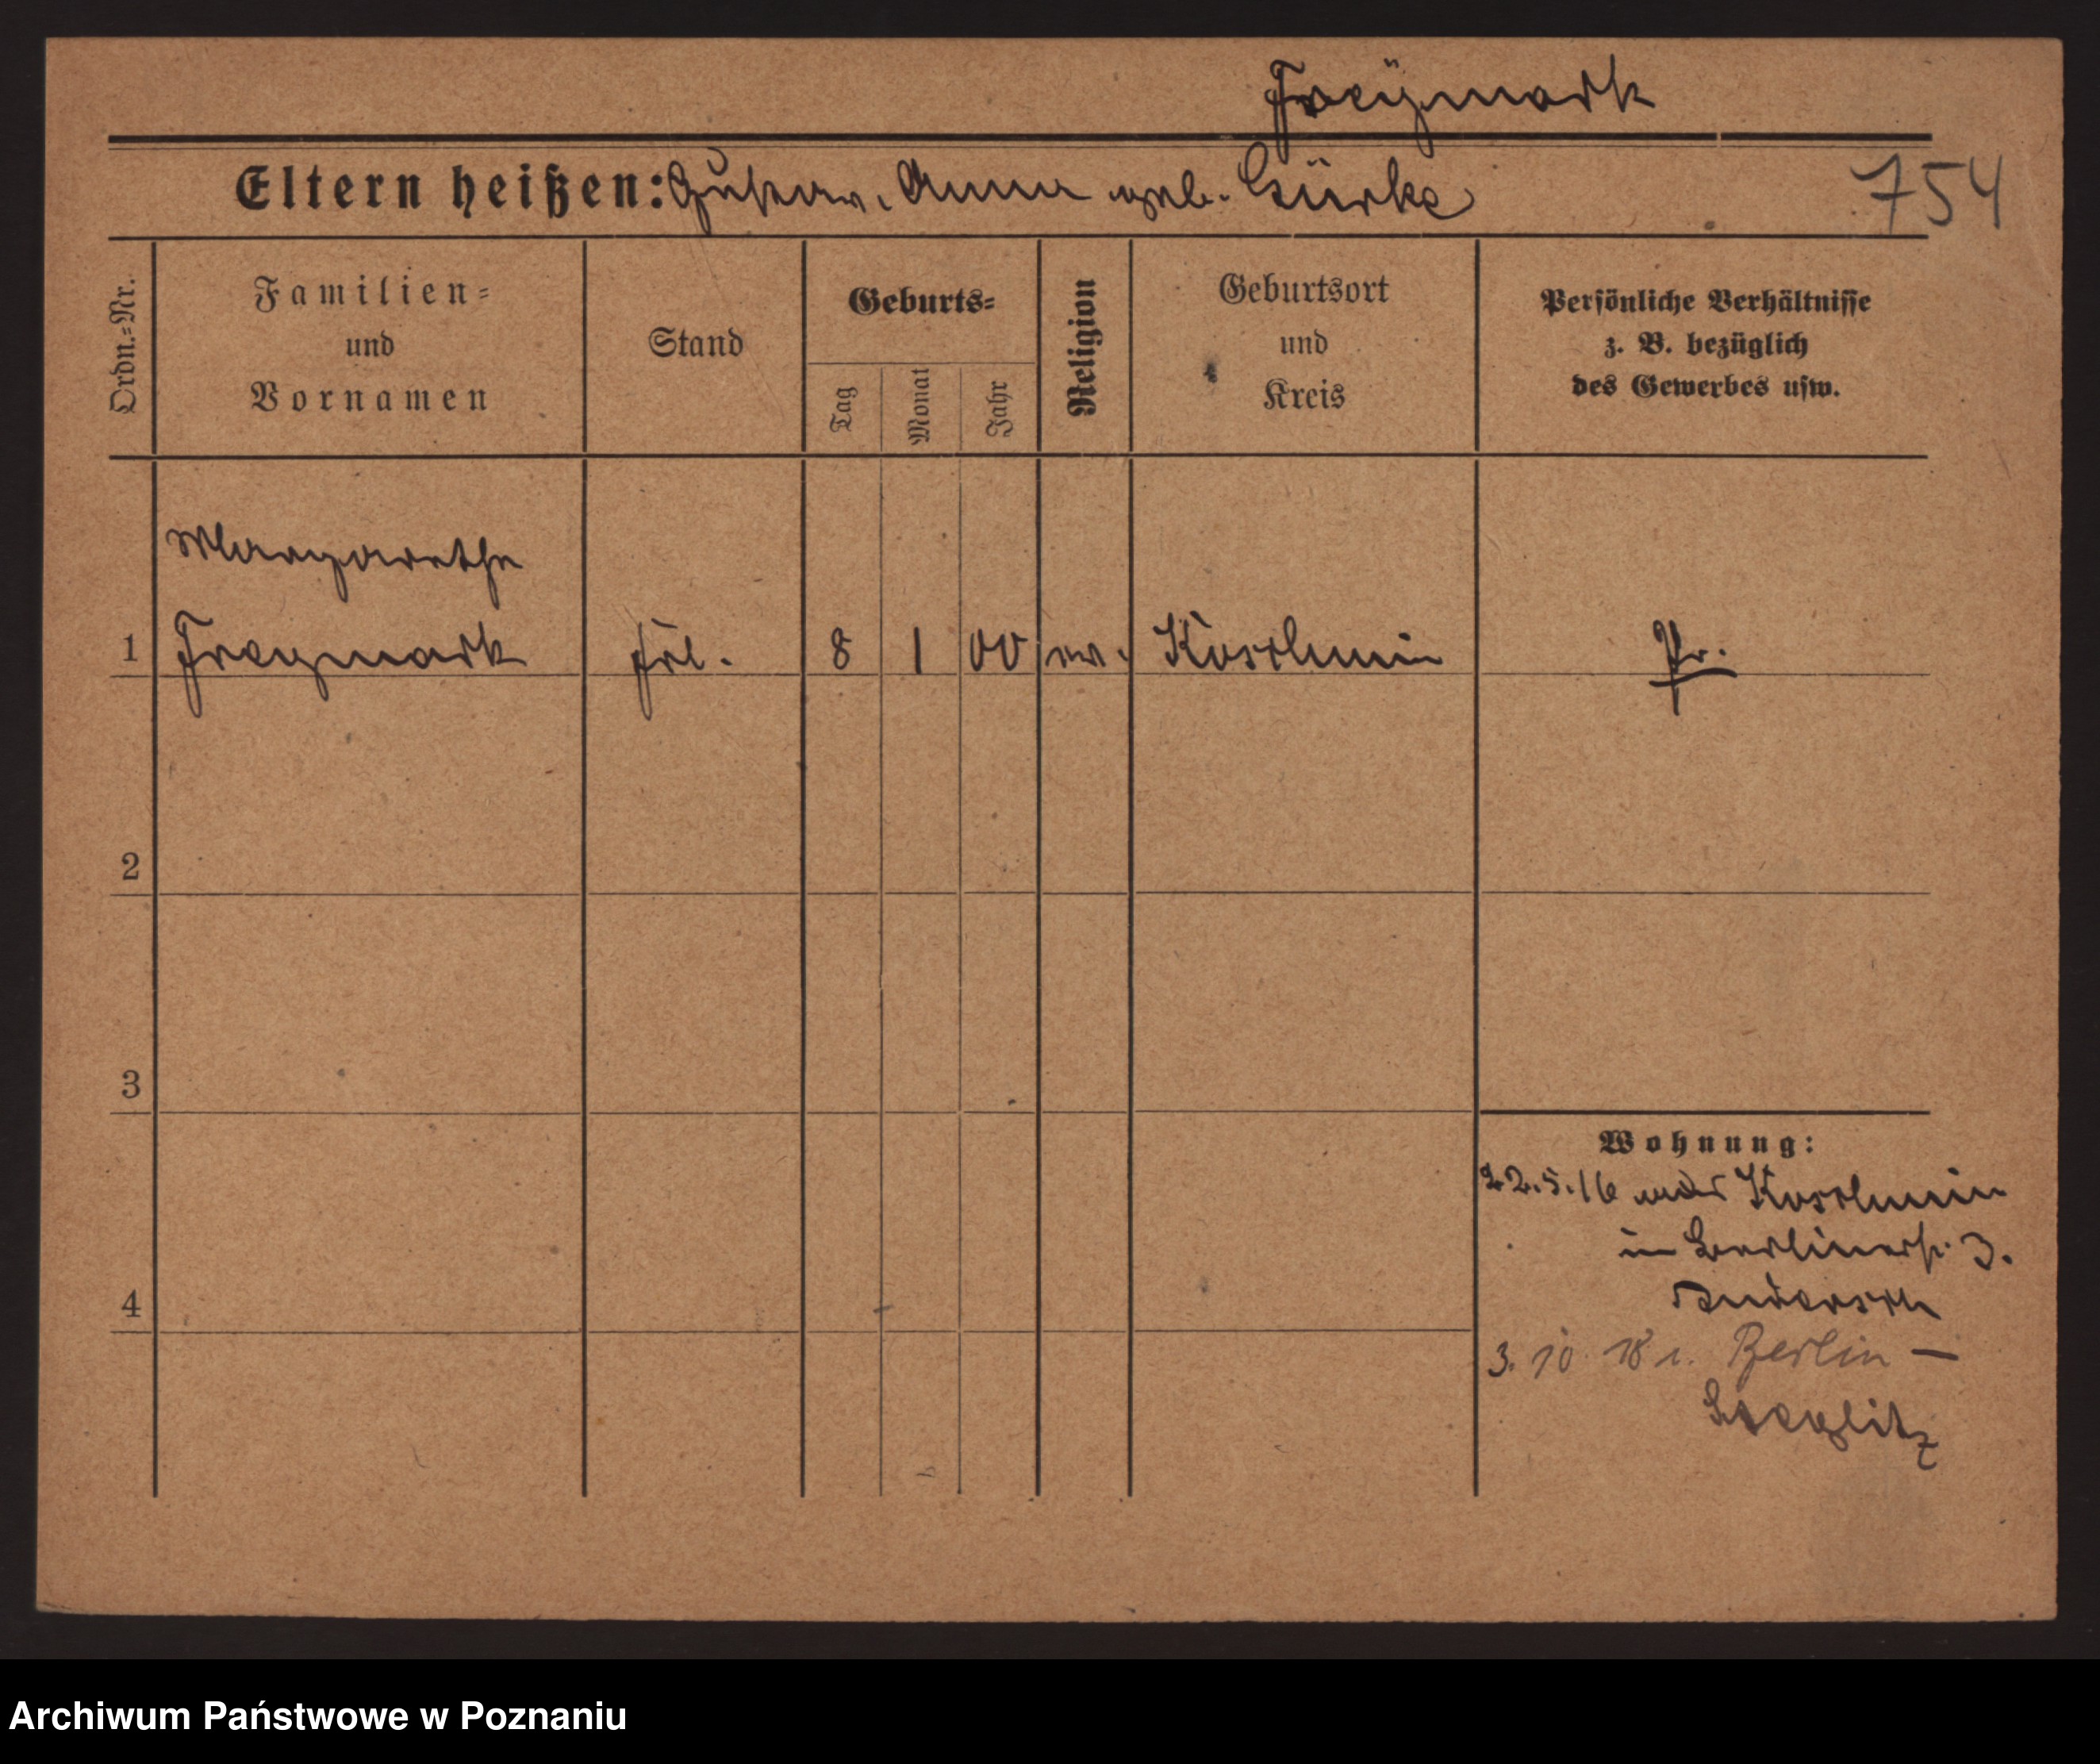 Freÿmark
Eltern heißen: Gustav, Anna geb. Gürke
754
Ordn.-Nr.
Familien-
und
Vornamen
Stand
Geburts-
Tag
Monat
Jahr
Religion
Geburtsort
und
Kreis
Persönliche Verhältnisse
z. B. bezüglich
des Gewerbes usw.
Margarethe
1 Freymark Frl. 8 1 00 ev. Koschmin Pr.
2
3
4
Wohnung:
22.5.16 Koschmin
in Berlinerstr. 3.
3. 10. 18 n. Berlin —
Steglitz
Archiwum Państwowe w Poznaniu